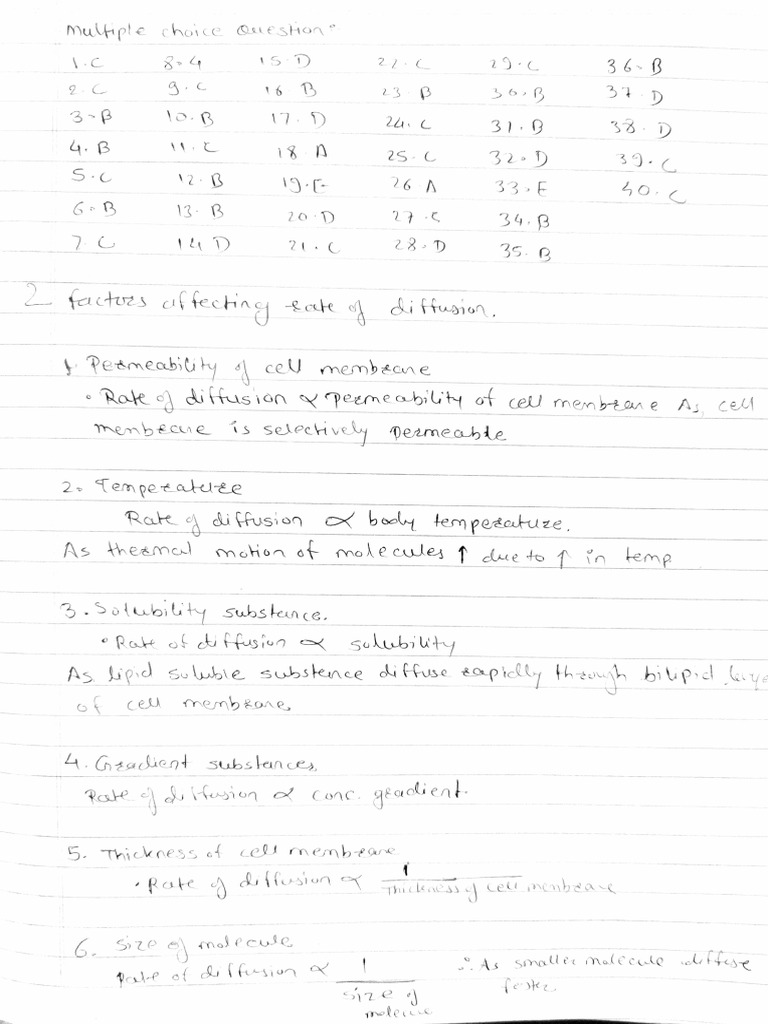 Multiple choice Question:
1. C 8. 4 15. D 22. C 29. C 36. B
2. C 9. C 16 B 23. B 30. B 37. D
3. B 10. B 17. D 24. C 31. B 38. D
4. B 11. C 18 A 25. C 32. D 39. C
5. C 12. B 19. E 26 A 33. E 40. C
6. B 13. B 20. D 27. C 34. B
7. C 14 D 21. C 28. D 35. B
2 factors affecting rate of diffusion.
1. Permeability of cell membrane
• Rate of diffusion ∝ Permeability of cell membrane As, cell
membrane is selectively permeable
2. Temperature
Rate of diffusion ∝ body temperature.
As thermal motion of molecules ↑ due to ↑ in temp
3. Solubility substance.
• Rate of diffusion ∝ solubility
As lipid soluble substence diffuse rapidly through bilipid laye
of cell membrane.
4. Gradient substances.
Rate of diffusion ∝ conc. gradient.
5. Thickness of cell membrane
• Rate of diffusion ∝ 1
Thickness of cell membrane
6. Size of molecule
Rate of diffusion ∝ 1 ∴ As smaller molecule diffuse
size of faster
molecule